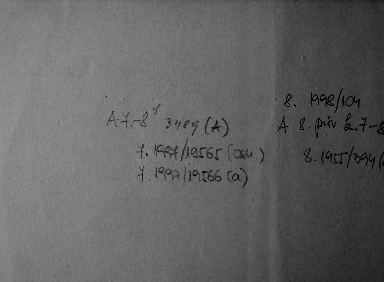 8. 1998/104
A 7.-8. 3489 (A)
A 8. priv. b. 7-8
7. 1997/19565 (
8. 1955/394 (
7. 1997/19566 (a)